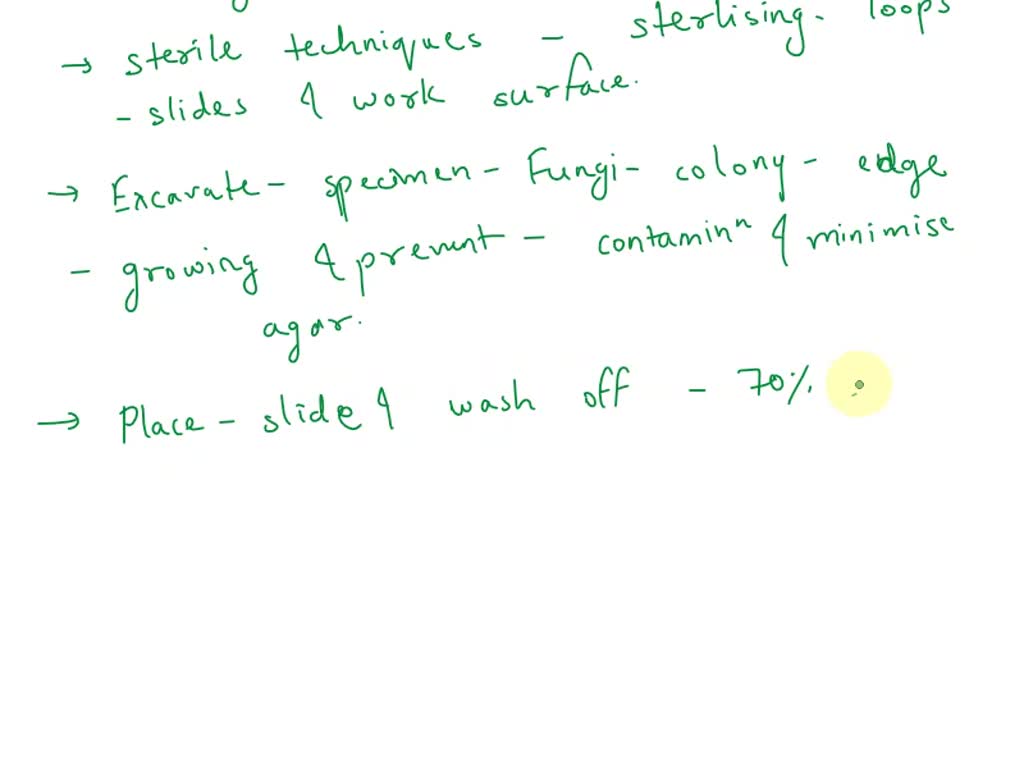 → sterile techniques - sterlising. loops
- slides & work surface.
→ Excavate - specimen - Fungi - colony - edge
- growing & prevent - contaminⁿ & minimise
agar.
→ Place - slide & wash off - 70%